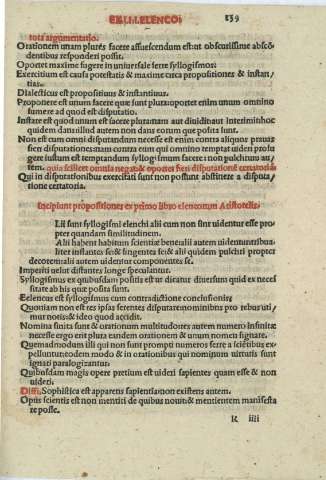 EX.I.LI.ELENCO.
139
tota argumentatio.
Orationem unam plures facere assuescendum est:ut obscurissime abscō
dentibus responderi possit.
Oportet maxime fugere in universale ferre syllogismos:
Exercitium est causa potestatis & maxime circa propositiones & instan/
tias.
Dialecticus est propositiuus & instantiuus.
Proponere est unum facere que sunt plura:oportet enim unum omnino
sumere ad quod est disputatio.
Instare est quod unum est facere plura:nam aut diuidit:aut interimit:hoc
quidem dans:illud autem non dans eorum que posita sunt.
Non est cum omni disputandum necesse est enim contra aliquos prauas
fieri disputationes:nam contra eum qui omnino temptat uideri profu
gere iustum est temptandum syllogismum facere: non pulchrum au/
tem. quia scilicet omnia negat: & oportet fieri disputationē certatoriā.
Qui in disputationibus exercitati sunt non possunt abstinere a disputa/
tione certatoria.
Incipiunt propositiones ex primo libro elencorum Aristotelis.
Lii sunt syllogismi elenchi alii cum non sint uidentur esse pro
pter quandam similitudinem.
Alii habent habitum scientiæ
decore:alii autem uidentur componentes se.
Imperiti uelut distantes longe speculantur.
Syllogismus ex quibusdam positis est ut dicatur diuersum quid ex neces
sitate ab his que posita sunt.
Eelencus est syllogismus cum contradictione conclusionis:
Quoniam non est res ipsas ferentes disputare:nominibus pro rebus uti/
mur notis:& ideo quod accidit.
Nomina finita sunt & orationum multitudo:res autem numero infinitæ
necesse ergo erit plura eandem orationem & unum nomen signare.
Quemadmodum illi qui non sunt prompti numeros ferre a scientibus ex/
pelluntur:eodem modo & in orationibus qui nominum uirtutis sunt
ignari paralogizantur.
Quibusdam magis opere pretium est uideri sapientes quam esse & non
uideri.
Diffi. Sophistica est apparens sapientia:non existens autem.
Opus scientis est non mentiri de quibus nouit:& mentientem manifesta
re posse.
R iiii